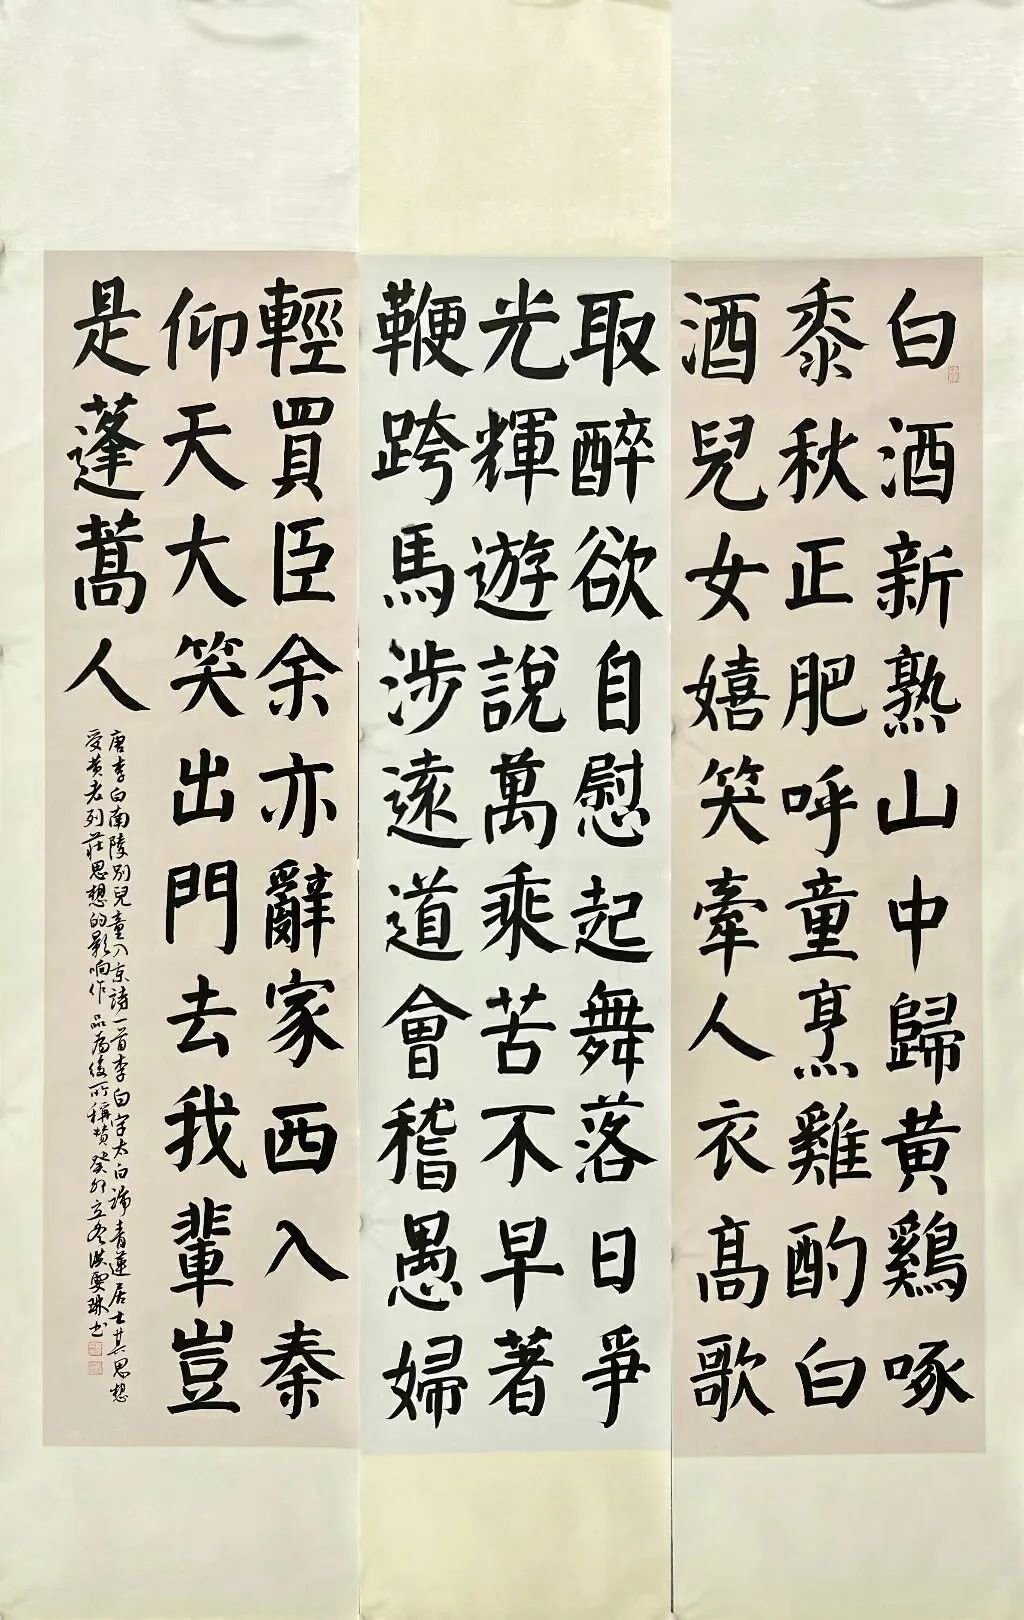 白酒新熟山中歸黄鷄啄
黍秋正肥呼童烹雞酌白
酒兒女嬉笑牽人衣高歌
取醉欲自慰起舞落日爭
光輝遊說萬乘苦不早著
鞭跨馬涉遠道會稽愚婦
輕買臣余亦辭家西入秦
仰天大笑出門去我輩豈
是蓬蒿人
唐李白南陵别兒童入京詩一首李白字太白號青蓮居士其思想
受黄老列莊思想的影响作品為後所稱贊癸卯立冬洪雯琳书